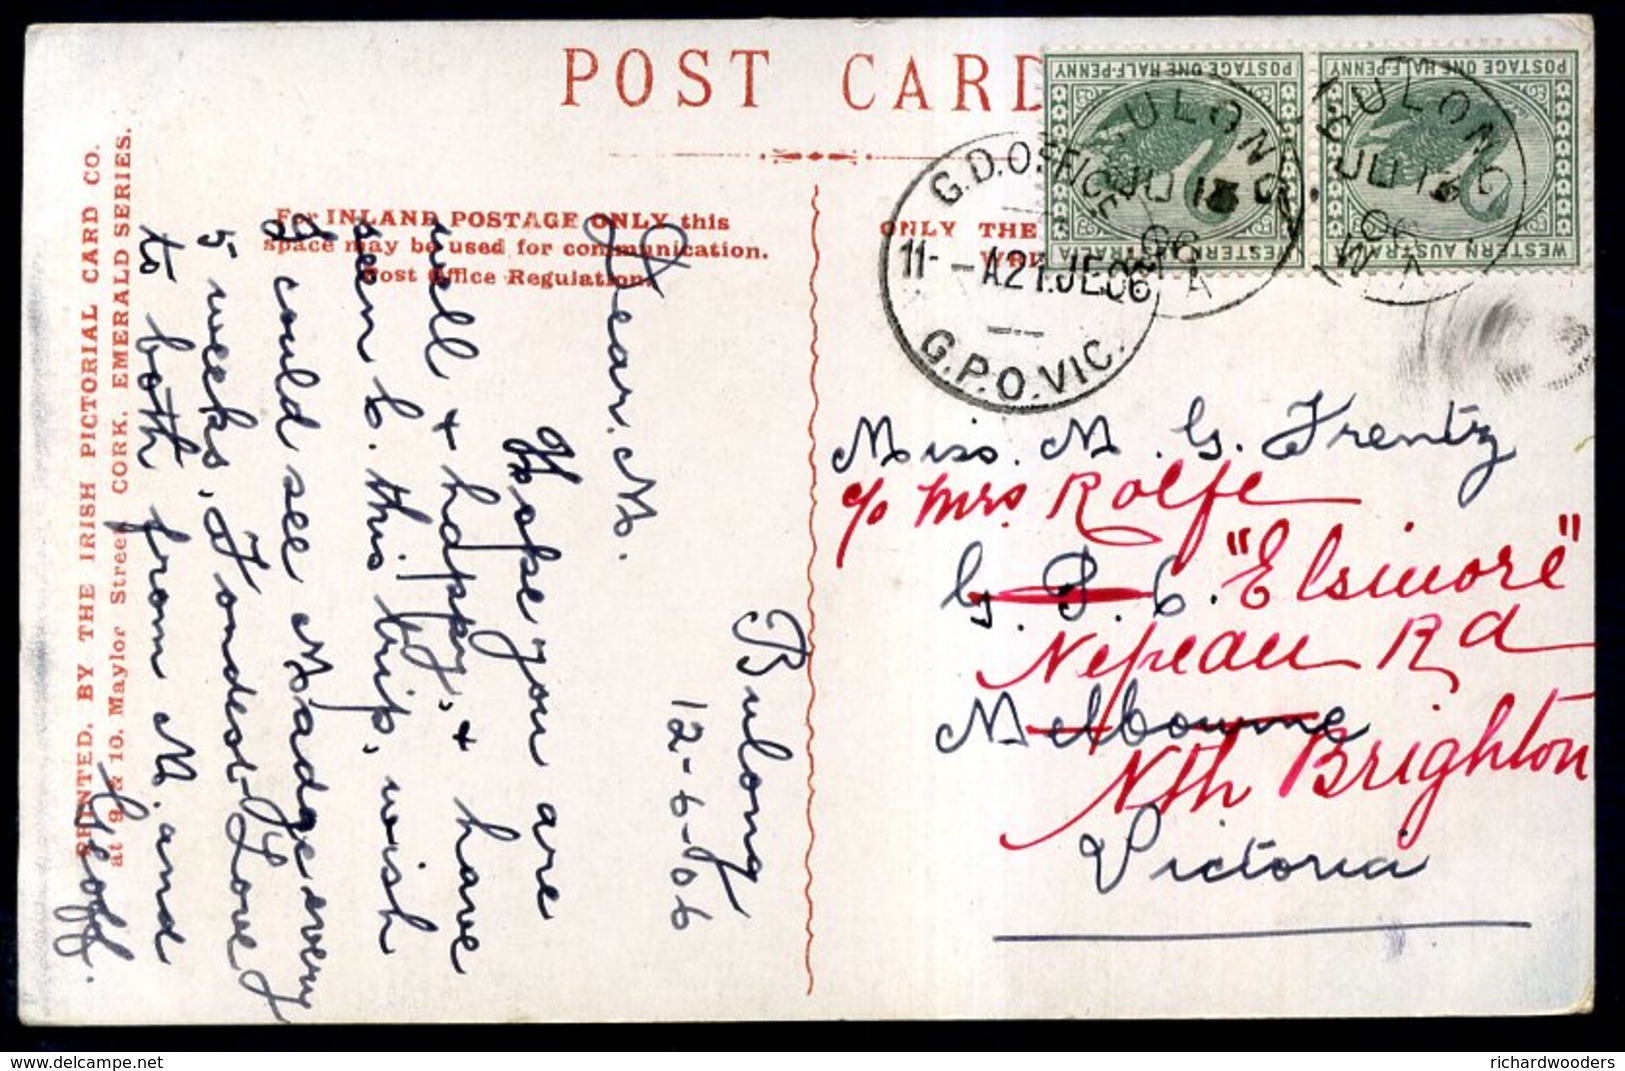 POST CARD
POSTAGE ONE HALF-PENNY
WESTERN AUSTRALIA
POSTAGE ONE HALF-PENNY
WESTERN AUSTRALIA
BULONG
JU 13
06
W A
BULONG
JU 13
06
W A
G.D.OFFICE
11- -A 21.JE 06
G.P.O. VIC.
For INLAND POSTAGE ONLY this
space may be used for communication.
Post Office Regulation.
ONLY THE
PRINTED. BY THE IRISH PICTORIAL CARD CO.
at 9 & 10. Maylor Street CORK. EMERALD SERIES.
Bulong
12-6-06
Dear. M.
Hope you are
well & happy, & have
seen C. this trip, wish
I could see Madge every
5 weeks. Fondest Love
to both from M. and
Geoff.
Miss. M. G. Frentz
c/o Mrs Rolfe
G. P. O. "Elsinore"
Nepean Rd
Melbourne
Nth Brighton
Victoria
richardwooders